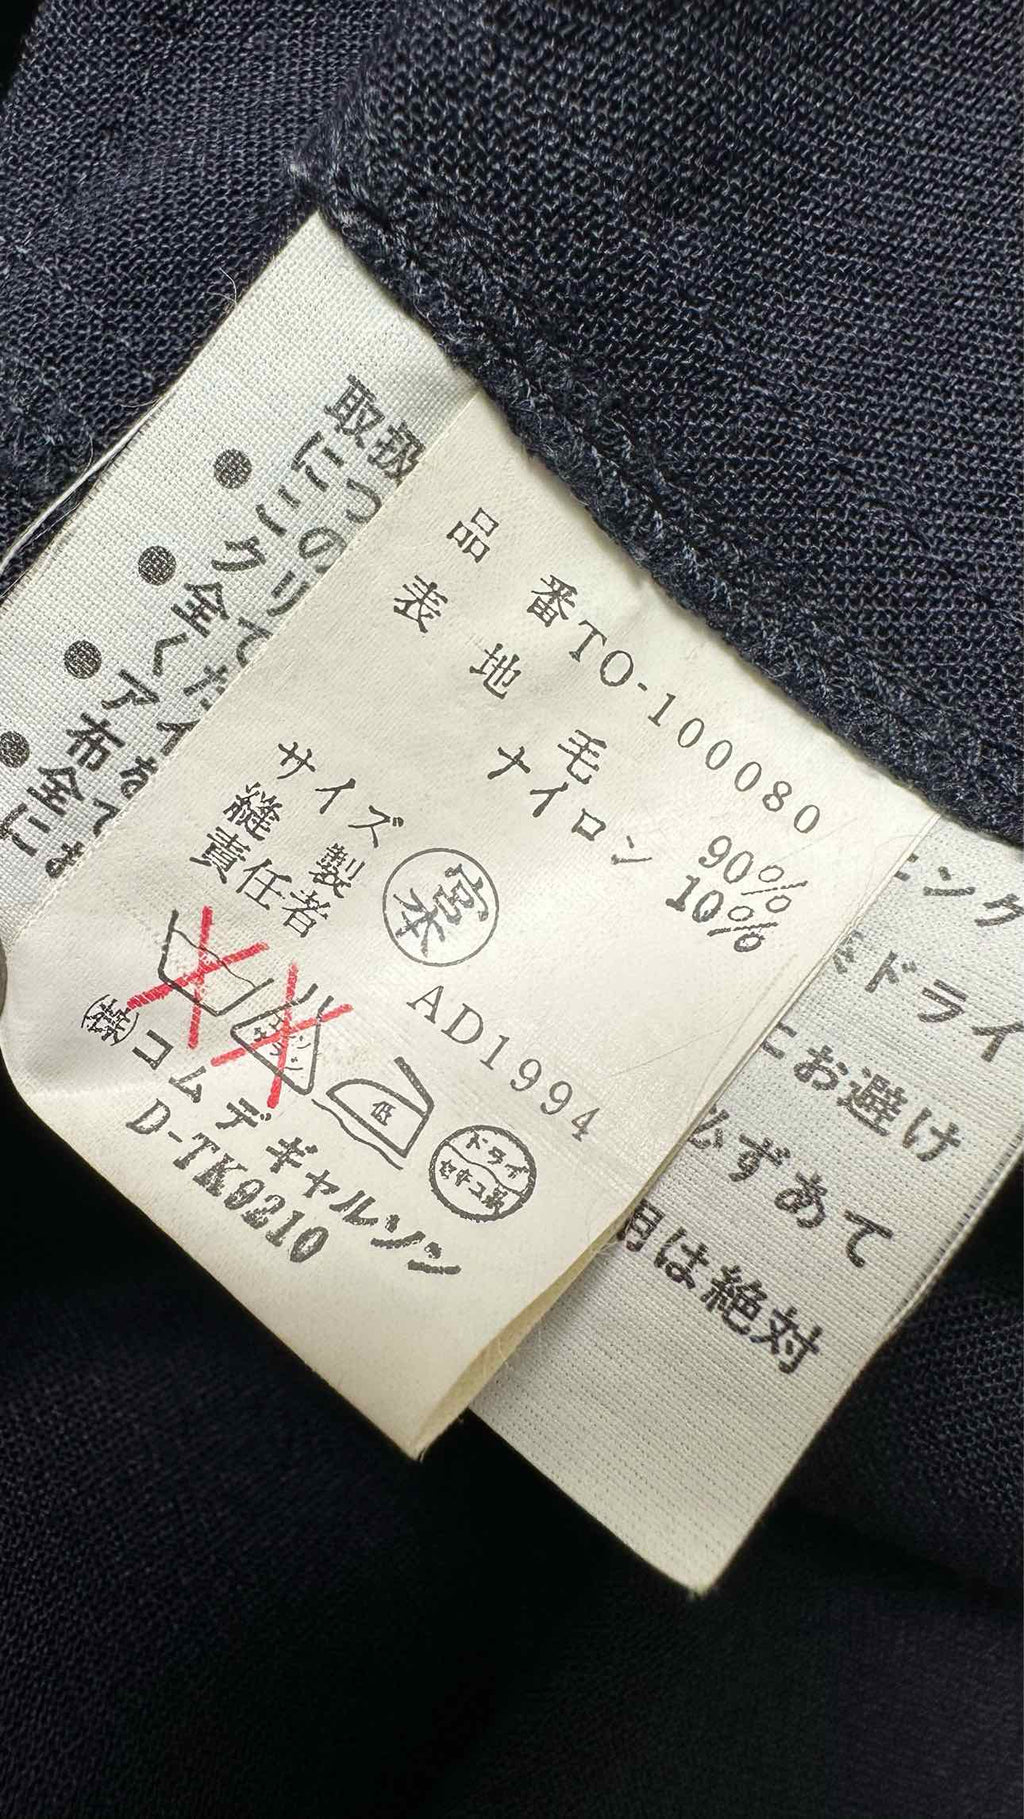 取扱
につ
●このクリ
●全てた
く
●アイ
布を
●全て
にお
品番TO-100080
表地 毛 90%
ナイロン 10%
サイズ
縫製
責任者
宮本
AD1994
低
ドライ
セキユ系
㈱コムデギャルソン
D-TK0210
ング
ドライ
お避け
必ずあて
用は絶対